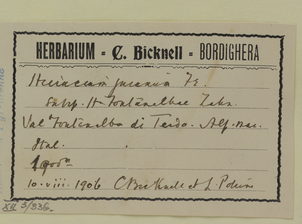 HERBARIUM - C. Bicknell - BORDIGHERA
Hieracium juranum Fr.
subsp. H. Fontanalbae Zahn.
Val Fontanalba di Tenda. Alp. Mar.
Ital.
10. viii. 1906 C. Bicknell et L. Pollini